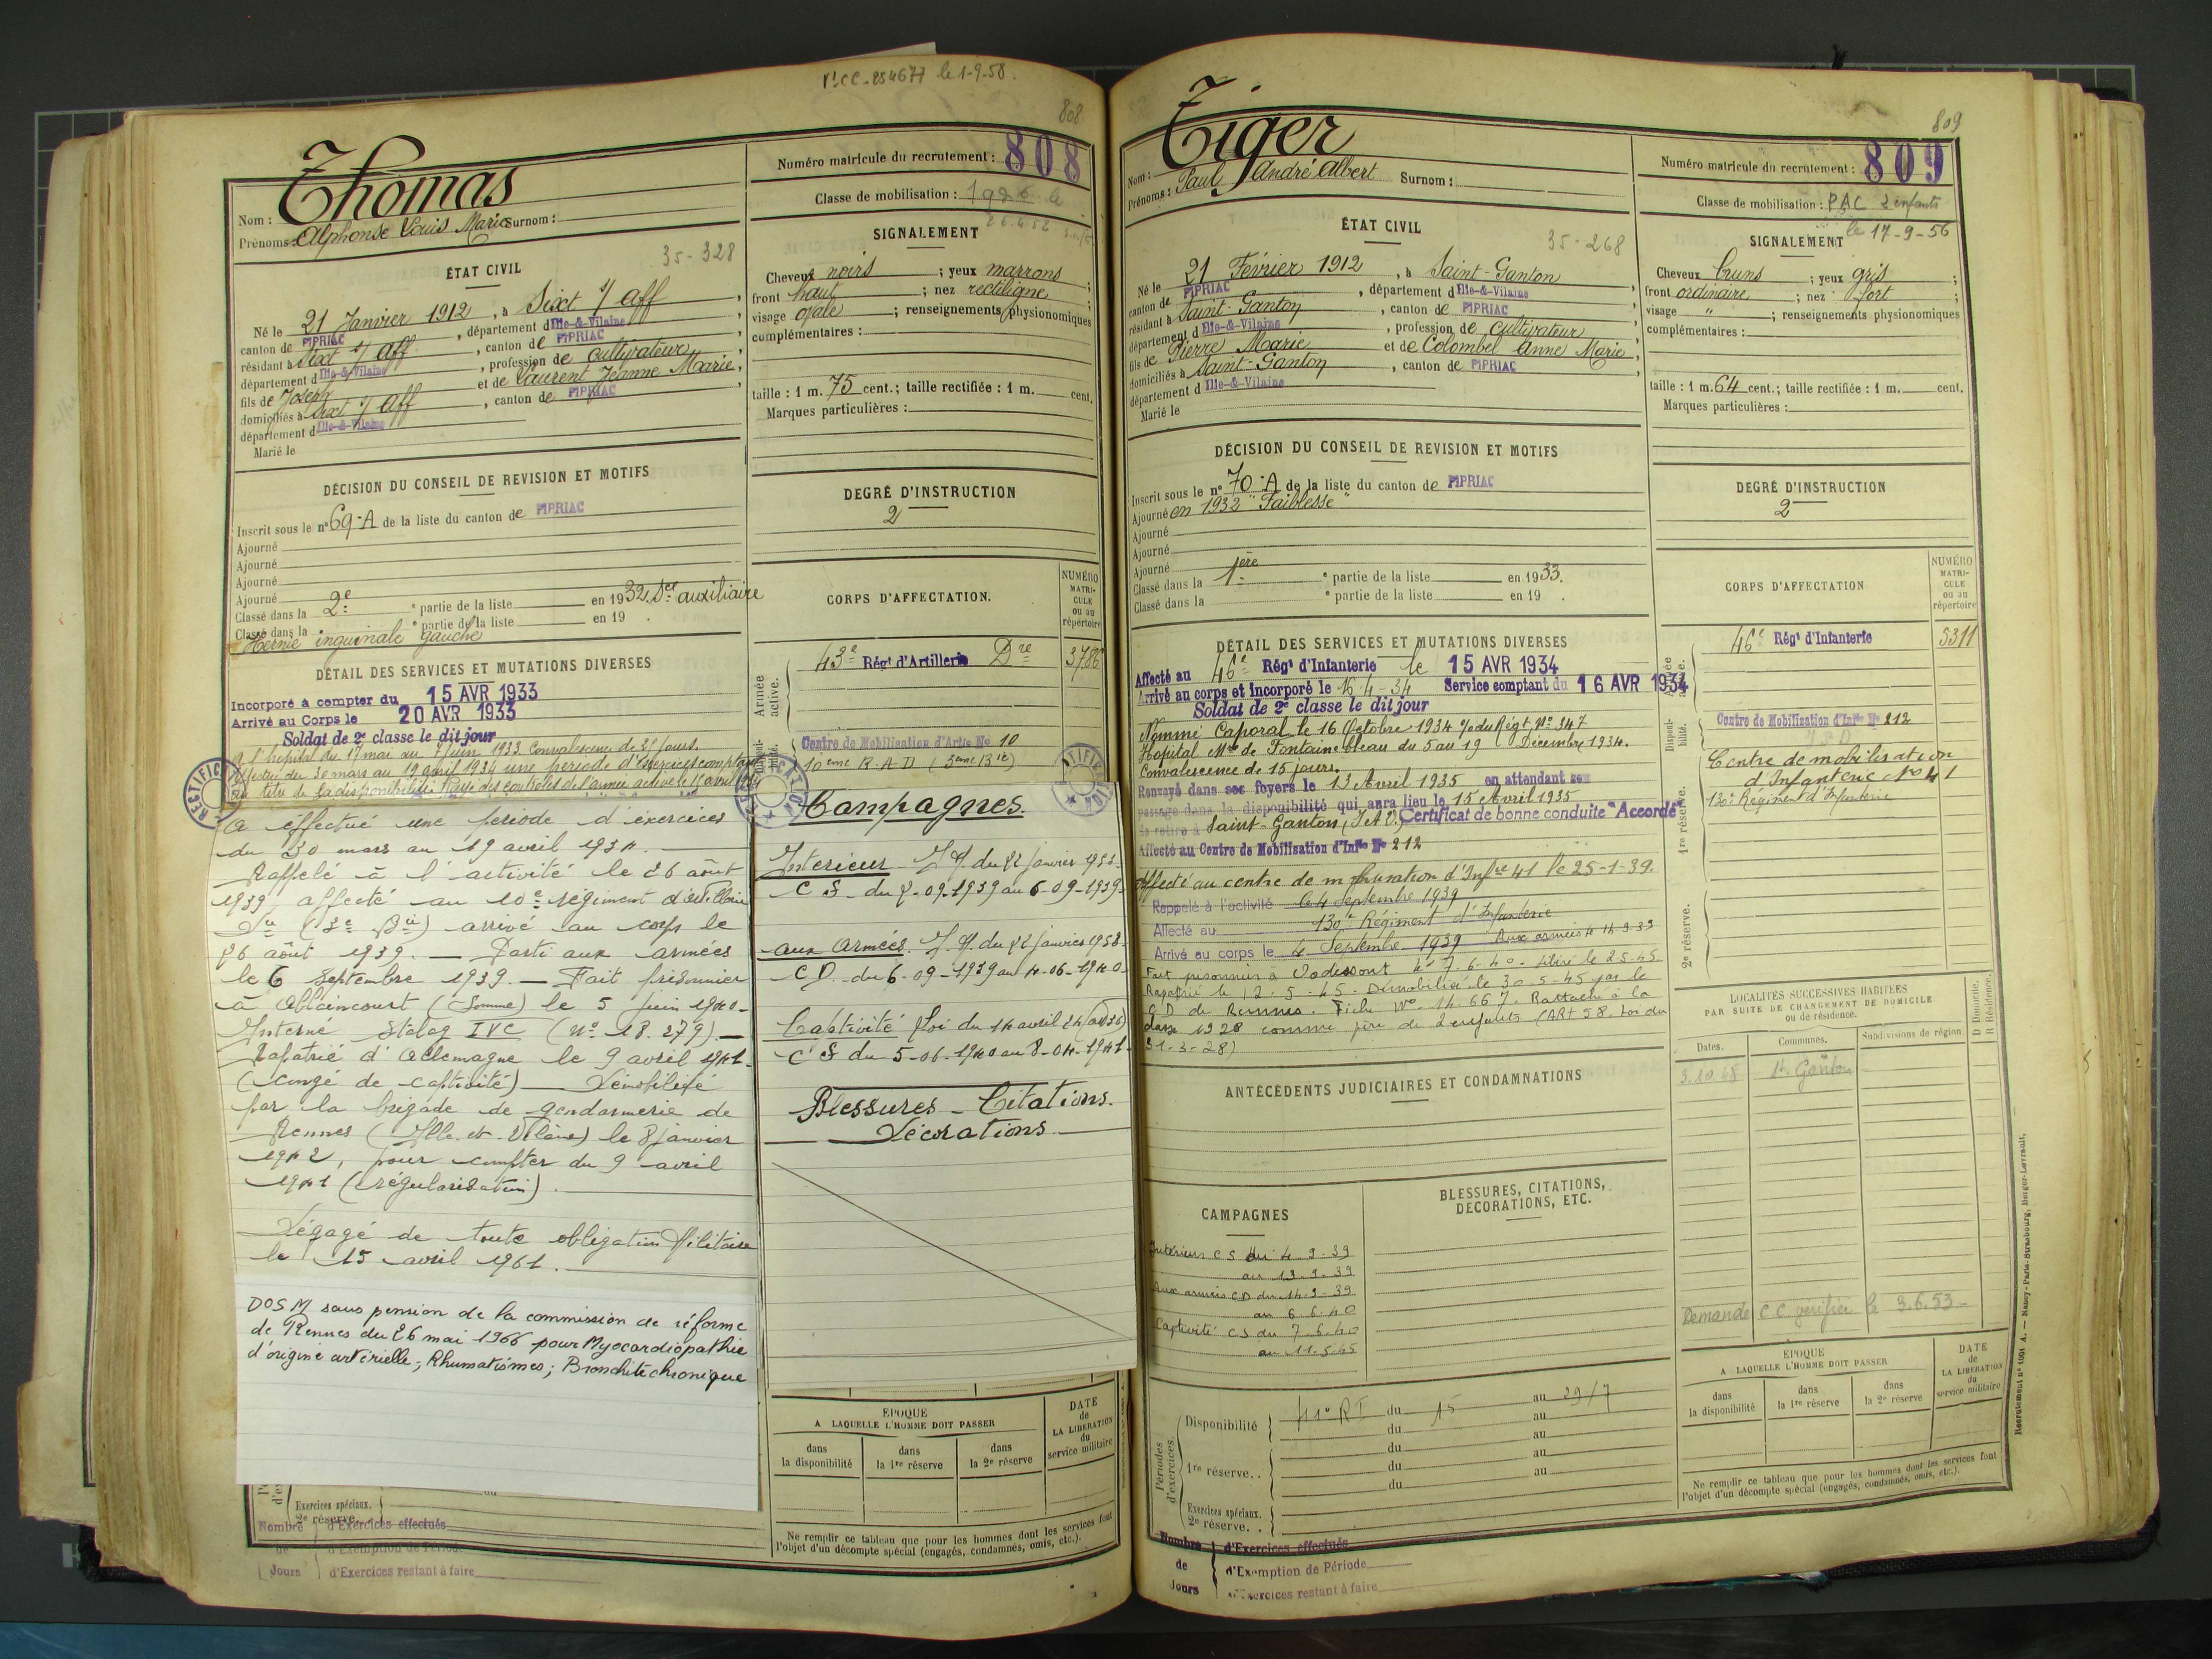 Nº CC-254677 le 1-9-58.
808
Thomas
Nom :
Prénoms : Alphonse Louis Marie Surnom :
Numéro matricule du recrutement : 808
Classe de mobilisation : 1926 le
26.4.52
35-328
ÉTAT CIVIL
Né le 21 Janvier 1912, à Sixt s/ Aff,
canton de PIPRIAC, département d Ille-&-Vilaine,
résidant à Sixt s/ Aff, canton de PIPRIAC,
département d Ille-&-Vilaine, profession de cultivateur,
fils de Joseph et de Laurent Jeanne Marie,
domiciliés à Sixt s/ Aff, canton de PIPRIAC,
département d Ille-&-Vilaine
Marié le
SIGNALEMENT
Cheveux noirs ; yeux marrons ;
front haut ; nez rectiligne ;
visage ovale ; renseignements physionomiques
complémentaires :
taille : 1 m. 75 cent.; taille rectifiée : 1 m. cent.
Marques particulières :
DÉCISION DU CONSEIL DE REVISION ET MOTIFS
Inscrit sous le nº 69-A de la liste du canton de PIPRIAC
Ajourné
Ajourné
Ajourné
Ajourné
Classé dans la 2e ᵉ partie de la liste en 1932 Sce auxiliaire
Classé dans la ᵉ partie de la liste en 19 .
Hernie inguinale gauche
DEGRÉ D'INSTRUCTION
2
CORPS D'AFFECTATION.
NUMÉRO
MATRI-
CULE
ou au
répertoire
Armée active.
43e Régt d'Artillerie Dre 3786
Centre de Mobilisation d'Artie Nº 10
10eme R.A.D (3eme Bie)
DÉTAIL DES SERVICES ET MUTATIONS DIVERSES
Incorporé à compter du 15 AVR 1933
Arrivé au Corps le 20 AVR 1933
Soldat de 2e classe le dit jour
A l'hôpital du 17 mai au 7 juin 1933 Convalescence de 31 jours.
Effectué du 30 mars au 19 avril 1934 une période d'exercices comptant
au titre de la disponibilité. Rayé des contrôles de l'armée active le 15 avril 1934
A effectué une période d'exercices
du 30 mars au 19 avril 1934.
Rappelé à l'activité le 26 août
1939, affecté au 10e régiment d'artillerie
Dre (3e Bie) arrivé au corps le
26 août 1939. — Parti aux armées
le 6 septembre 1939. — Fait prisonnier
à Ablaincourt (Somme) le 5 juin 1940-
Interné stalag IVC (Nº 18.279). —
Rapatrié d'Allemagne le 9 avril 1941-
(congé de captivité) — Démobilisé
par la brigade de gendarmerie de
Rennes (Ille-et-Vilaine) le 8 janvier
1942, pour compter du 9 avril
1941 (régularisation).
Dégagé de toute obligation Militaire
le 15 avril 1961.
DOSM sans pension de la commission de réforme
de Rennes du 26 mai 1966 pour Myocardiopathie
d'origine artérielle; Rhumatismes; Bronchite chronique
Campagnes.
Intérieur
C S du 2-09-1939 au 6-09-1939
aux Armées.
C D du 6-09-1939 au 4-06-1940
Captivité (loi du 14 avril 24 (art 36)
C S du 5-06-1940 au 8-04-1941-
Blessures - Citations.
Décorations
ÉPOQUE
A LAQUELLE L'HOMME DOIT PASSER
dans la disponibilité
dans la 1re réserve
dans la 2e réserve
DATE
de
LA LIBÉRATION
du
service militaire
Exercices spéciaux.
2e réserve. .
Nombre d'Exercices effectués
de d'Exemption de Période
Jours d'Exercices restant à faire
Ne remplir ce tableau que pour les hommes dont les services font
l'objet d'un décompte spécial (engagés, condamnés, omis, etc.).
809
Tiger
Nom :
Prénoms : Paul André Albert Surnom :
Numéro matricule du recrutement : 809
Classe de mobilisation : PAC 2 enfants
le 17-9-56
35-268
ÉTAT CIVIL
Né le 21 Février 1912, à Saint-Ganton,
canton de PIPRIAC, département d Ille-&-Vilaine,
résidant à Saint-Ganton, canton de PIPRIAC,
département d Ille-&-Vilaine, profession de cultivateur,
fils de Pierre Marie et de Colombel Anne Marie,
domiciliés à Saint-Ganton, canton de PIPRIAC,
département d Ille-&-Vilaine
Marié le
SIGNALEMENT
Cheveux bruns ; yeux gris ;
front ordinaire ; nez fort ;
visage " ; renseignements physionomiques
complémentaires :
taille : 1 m. 64 cent.; taille rectifiée : 1 m. cent.
Marques particulières :
DÉCISION DU CONSEIL DE REVISION ET MOTIFS
Inscrit sous le nº 70-A de la liste du canton de PIPRIAC
Ajourné en 1932 "Faiblesse"
Ajourné
Ajourné
Ajourné
Classé dans la 1ère ᵉ partie de la liste en 1933.
Classé dans la ᵉ partie de la liste en 19 .
DEGRÉ D'INSTRUCTION
2
CORPS D'AFFECTATION
NUMÉRO
MATRI-
CULE
ou au
répertoire
46e Régt d'Infanterie 5311
Disponibilité.
Centre de Mobilisation d'Infie Nº 212
Centre de mobilisation
d'Infanterie Nº 41
130e Régiment d'Infanterie
1re réserve.
2e réserve.
DÉTAIL DES SERVICES ET MUTATIONS DIVERSES
Affecté au 46e Régt d'Infanterie le 15 AVR 1934
Arrivé au corps et incorporé le 16-4-34 Service comptant du 16 AVR 1934
Soldat de 2e classe le dit jour
Nommé Caporal le 16 Octobre 1934 o/ du Régt Nº 347
Hopital Mre de Fontainebleau du 5 au 19 Décembre 1934.
Convalescence de 15 jours.
Renvoyé dans ses foyers le 13 Avril 1935 en attendant son
passage dans la disponibilité qui aura lieu le 15 Avril 1935
Se retire à Saint-Ganton (I et V.) Certificat de bonne conduite "Accordé"
Affecté au Centre de Mobilisation d'Infie Nº 212
Affecté au centre de mobilisation d'Infie 41 le 25-1-39.
Rappelé à l'activité le 4 Septembre 1939
Affecté au 130e Régiment d'Infanterie
Arrivé au corps le 4 Septembre 1939 Aux armées le 14.9.39
Fait prisonnier à le 7-6-40. Libéré le 2-5-45
Rapatrié le 12-5-45. Démobilisé le 30-5-45 par le
C D de Rennes. Fiche Nº 14.667. Rattaché à la
classe 1928 comme père de 2 enfants (Art 58. Loi du
31-3-28)
ANTÉCÉDENTS JUDICIAIRES ET CONDAMNATIONS
LOCALITÉS SUCCESSIVES HABITÉES
PAR SUITE DE CHANGEMENT DE DOMICILE
ou de résidence.
D Domicile.
R Résidence.
Dates. Communes. Subdivisions de région.
3.10.48 St Ganton
CAMPAGNES
BLESSURES, CITATIONS,
DÉCORATIONS, ETC.
Intérieur C S du 4.9.39
au 13.9.39
Aux armées CD du 14.9.39
au 6.6.40
Captivité CS du 7.6.40
au 11.5.45
Demande CC vérifiée le 3.6.53-
Périodes d'exercices.
Disponibilité 41e RI du 15 au 29/7
du au
du au
1re réserve. . du au
du
Exercices spéciaux.
2e réserve. .
Nombre d'Exercices effectués
de d'Exemption de Période
Jours d'Exercices restant à faire
ÉPOQUE
A LAQUELLE L'HOMME DOIT PASSER
dans la disponibilité
dans la 1re réserve
dans la 2e réserve
DATE
de
LA LIBÉRATION
du
service militaire
Ne remplir ce tableau que pour les hommes dont les services font
l'objet d'un décompte spécial (engagés, condamnés, omis, etc.).
Recrutement nº 1001 A. — Nancy-Paris-Strasbourg, Berger-Levrault.